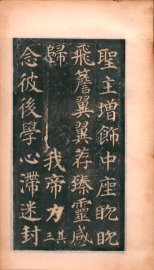 聖主增飾中座眈眈
飛簷翼翼荐臻靈感
歸我帝力其三
念彼後學心滯迷封